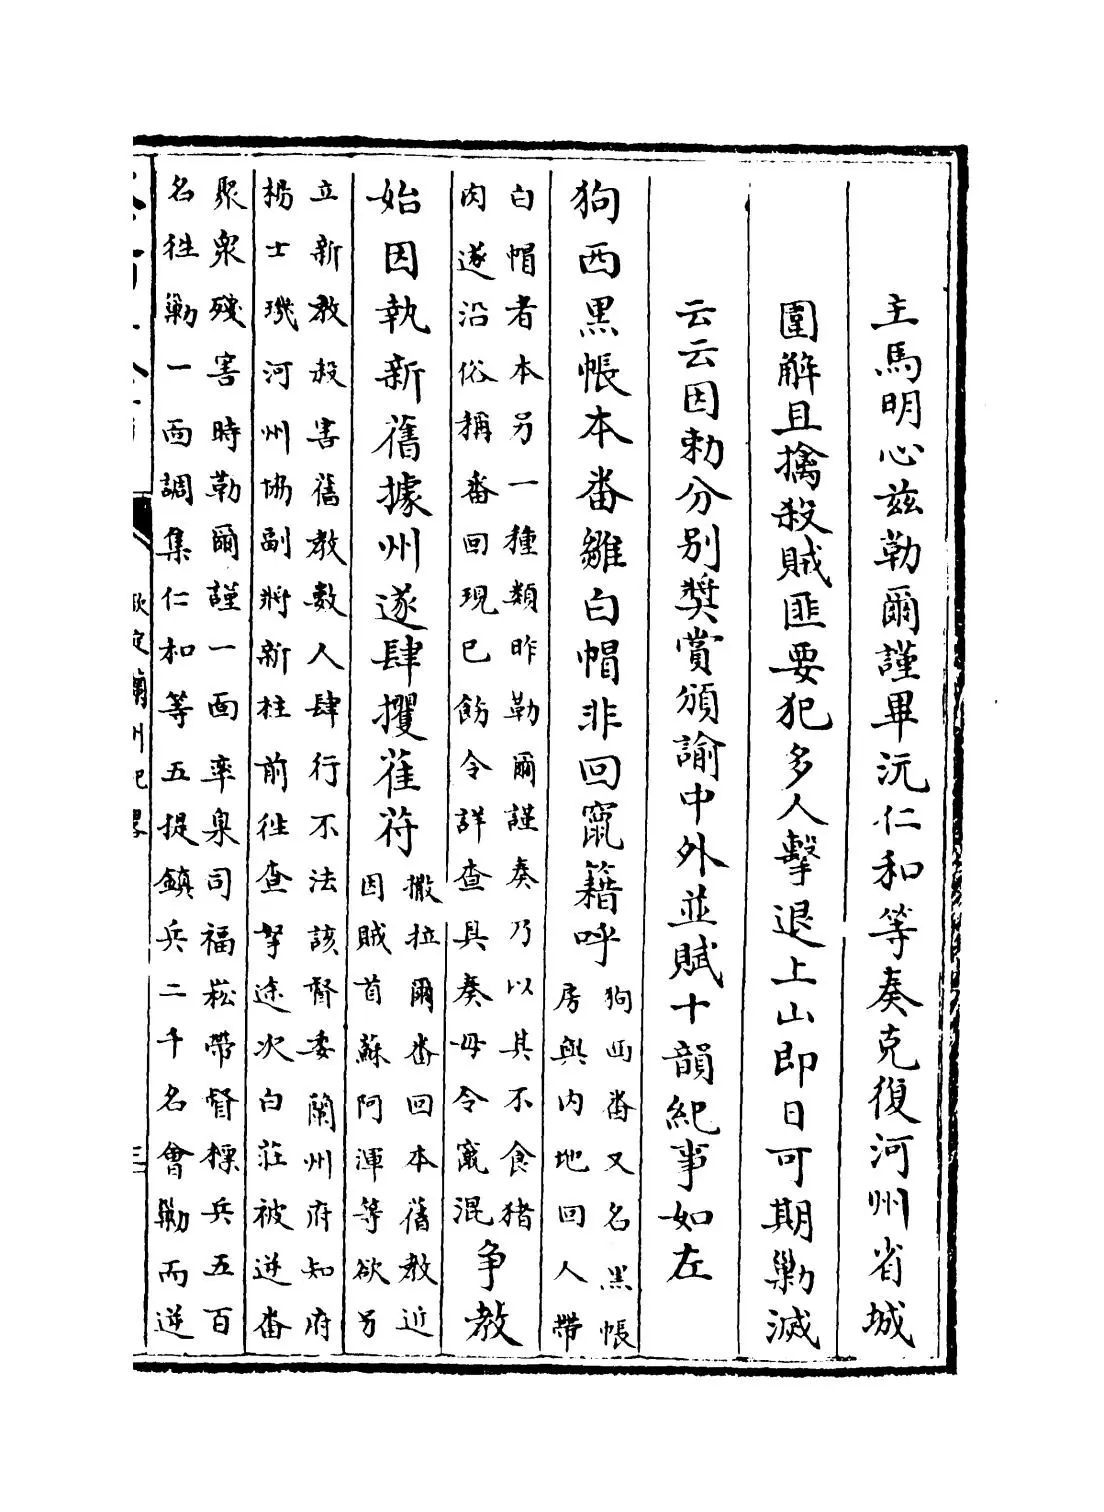 主馬明心兹勒爾謹畢沅仁和等奏克復河州省城
圍解且擒殺賊匪要犯多人擊退上山即日可期勦滅
云云因勅分别奬賞頒諭中外並賦十韻紀事如左
狗西黑帳本番雖白帽非回竄籍呼
狗西番又名黑帳
房與内地回人帶
白帽者本另一種類昨勒爾謹奏乃以其不食猪
肉遂沿俗稱番回現已飭令詳查具奏毋令竄混
争教
始因執新舊據州遂肆攫萑苻
撒拉爾番回本舊教近
因賊首蘇阿渾等欲另
立新教殺害舊教數人肆行不法該督委蘭州府知府
楊士璣河州協副將新柱前徃查拏途次白莊被逆番
聚衆殘害時勒爾謹一面率臬司福崧帶督標兵五百
名徃勦一面調集仁和等五提鎮兵二千名會勦而逆